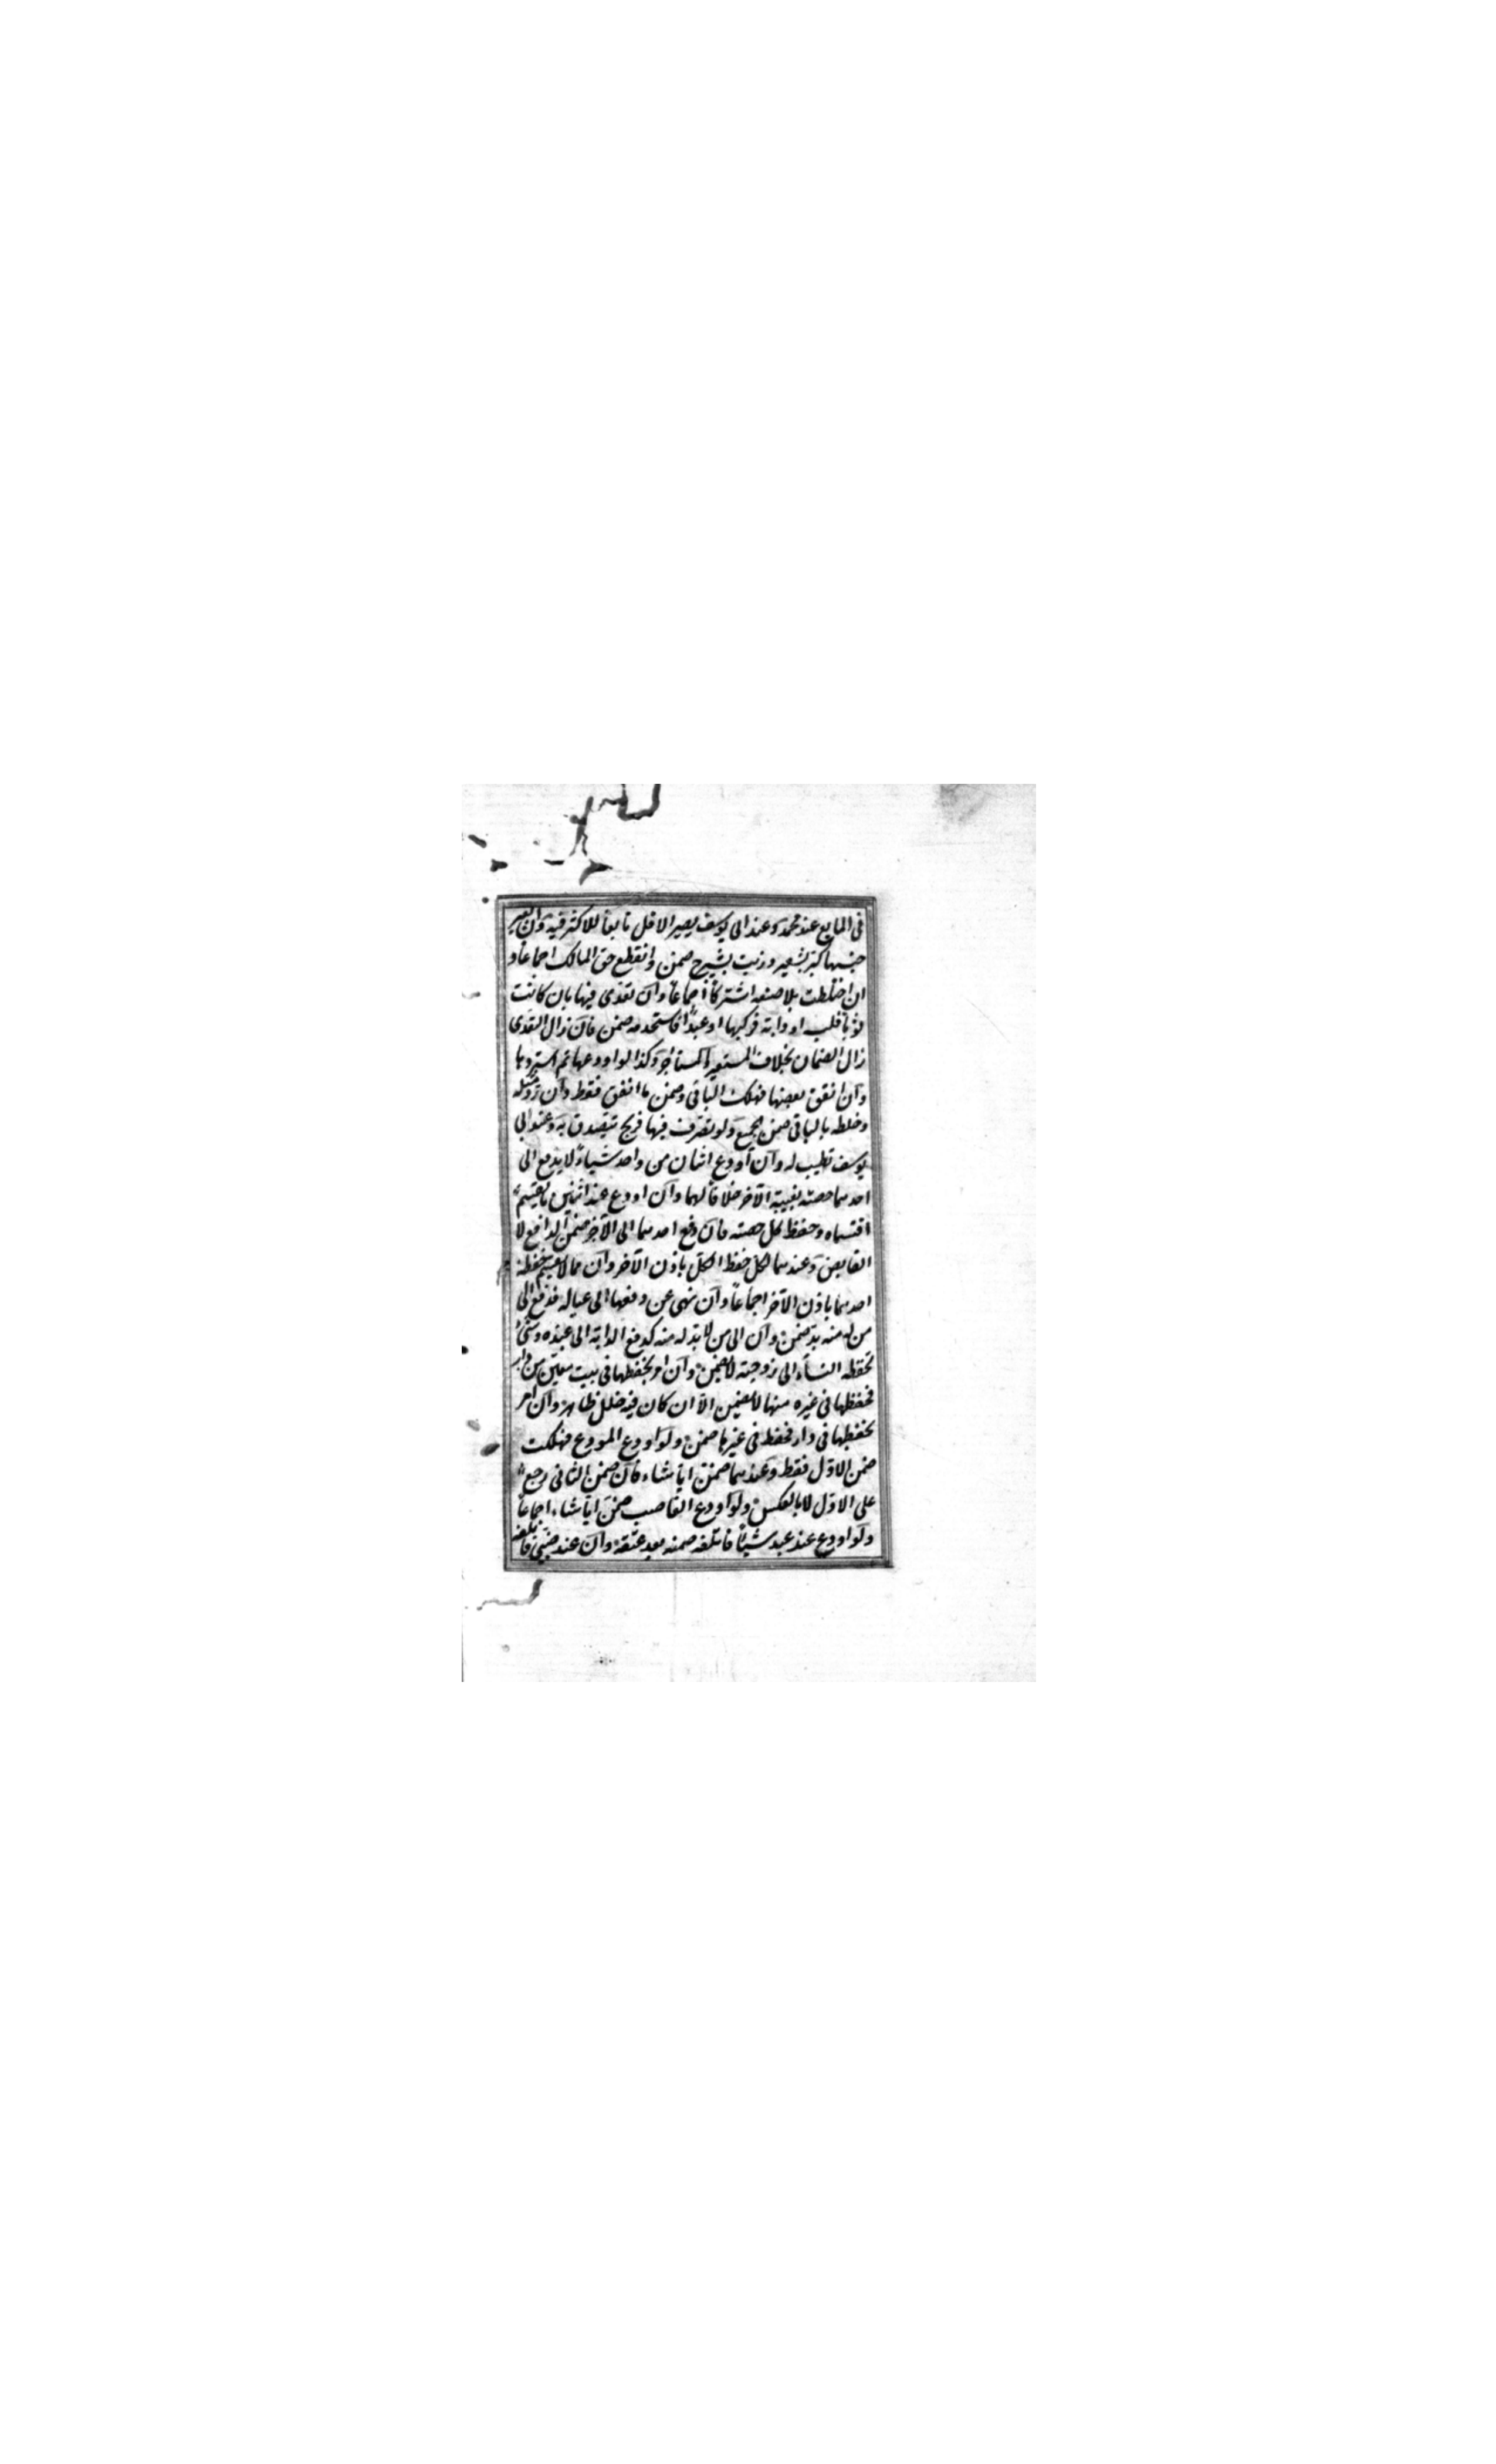 فى المايع عند محمد وعند ابى يوسف يصير الاقل تابعا للاكثر فيه وان بغير
جنسها كبر بشعير وزيت بشيرج ضمن وانقطع حق المالك اجماعا و
ان اختلطت بلا صنعه اشتركا اجماعا وان تعدى فيها بان كانت
ثوبا فلبسه او دابة فركبها او عبدا فاستخدمه ضمن فان زال التعدى
زال الضمان بخلاف المستعير والمستاجر وكذا لو اودعها ثم استردها
وان انفق بعضها فهلك الباقى ضمن ما انفق فقط وان رد مثله
وخلطه بالباقى ضمن الجميع ولو تصرف فيها فربح يتصدق به وعند ابى
يوسف تطيب له وان اودع اثنان من واحد شياء لا يدفع الى
احدهما حصته بغيبة الآخر خلافا لهما وان اودع عند اثنين ما يقسم
اقتسماه وحفظ كل حصته فان دفع احدهما الى الآخر ضمن الدافع لا
القابض وعندهما لكل حفظ الكل باذن الآخر وان مما لا يقسم حفظه
احدهما باذن الآخر اجماعا وان نهى عن دفعها الى عياله فدفع الى
من له منه بد ضمن وان الى من لا بد له منه كدفع الدابة الى عبده وشئ
تحفظه النساء الى زوجته لا يضمن وان امر بحفظها فى بيت معين من دار
فحفظها فى غيره منها لا يضمن الا ان كان فيه خلل ظاهر وان امر
بحفظها فى دار فحفظ فى غيرها ضمن ولو اودع المودع فهلكت
ضمن الاول فقط وعندهما ضمن ايا شاء فان ضمن الثانى رجع
على الاول لا بالعكس ولو اودع الغاصب ضمن ايا شاء اجماعا
ولو اودع عند عبد شيئا فاتلفه ضمنه بعد عتقه وان عند صبى فاتلفه